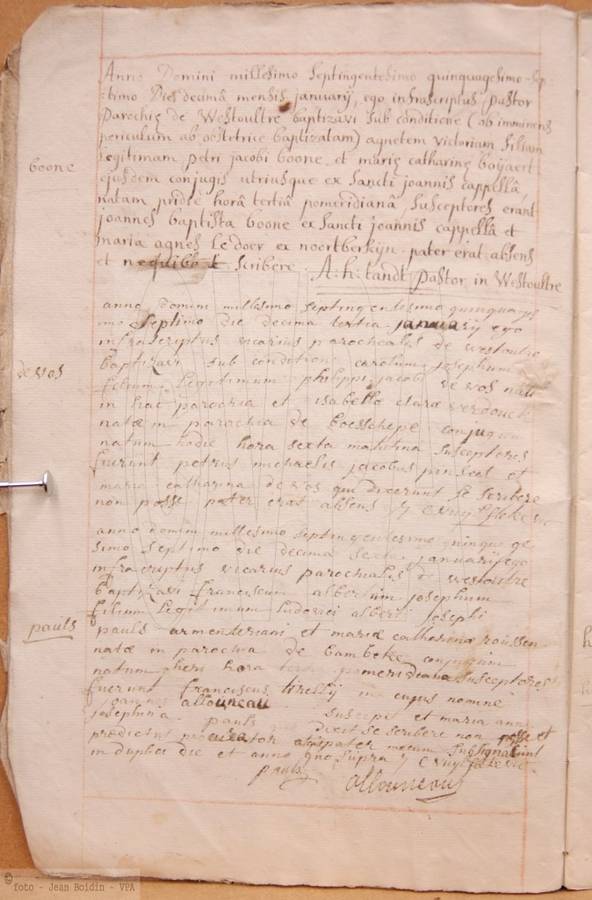 Anno Domini millesimo septingentesimo quinquagesimo sep-
timo Die decima mensis januarij, ego infrascriptus pastor
parochiæ de Westoultre baptizavi sub conditione (ob imminens
periculum ab obstetrice baptizatam) agnetem victoriam filiam
boone
legitimam petri jacobi boone et mariæ catharinæ boijaert
ejusdem conjugis utriusque ex sancti joannis cappellâ
natam pridie horâ tertiâ pomeridianâ susceptores erant
joannes baptista boone ex sancti joannis cappellâ et
maria agnes Le doer ex noertberkijn pater erat absens
et scribere. A: h: tandt pastor in Westoultre
anno domini millesimo septingentesimo quinquages
imo septimo die decima tertia januarij ego
infrascriptus vicarius parochialis de westoutre
baptizavi sub conditione carolum josephum
de vos
filium legitimum philippi jacobi de vos nati
in hac parochia et isabellæ claræ
natæ in parochia de boesschepe conjugum
natum hodie hora sexta matutina susceptores
fuerunt petrus michaelis jacobus et
maria catharina de vos qui dixerunt se scribere
non posse pater erat absens
anno domini millesimo septingentesimo quinquage
simo septimo die decima sexta januarij ego
infrascriptus vicarius parochialis de westoutre
baptizavi franciscum albertum josephum
filium legitimum ludovici alberti josephi
pauls
pauls armenteriani et mariæ catharinæ
natæ in parochia de bambeke conjugum
natum heri hora pomeridiana susceptores
fuerunt franciscus in cujus nomine
joannes allouneau suscepit et maria anna
josephina pauls dixit se scribere non posse et
prædictus pater mecum subsignarunt
in duplo die et anno quo supra
pauls allouneau
© foto - Jean Boidin - VPA